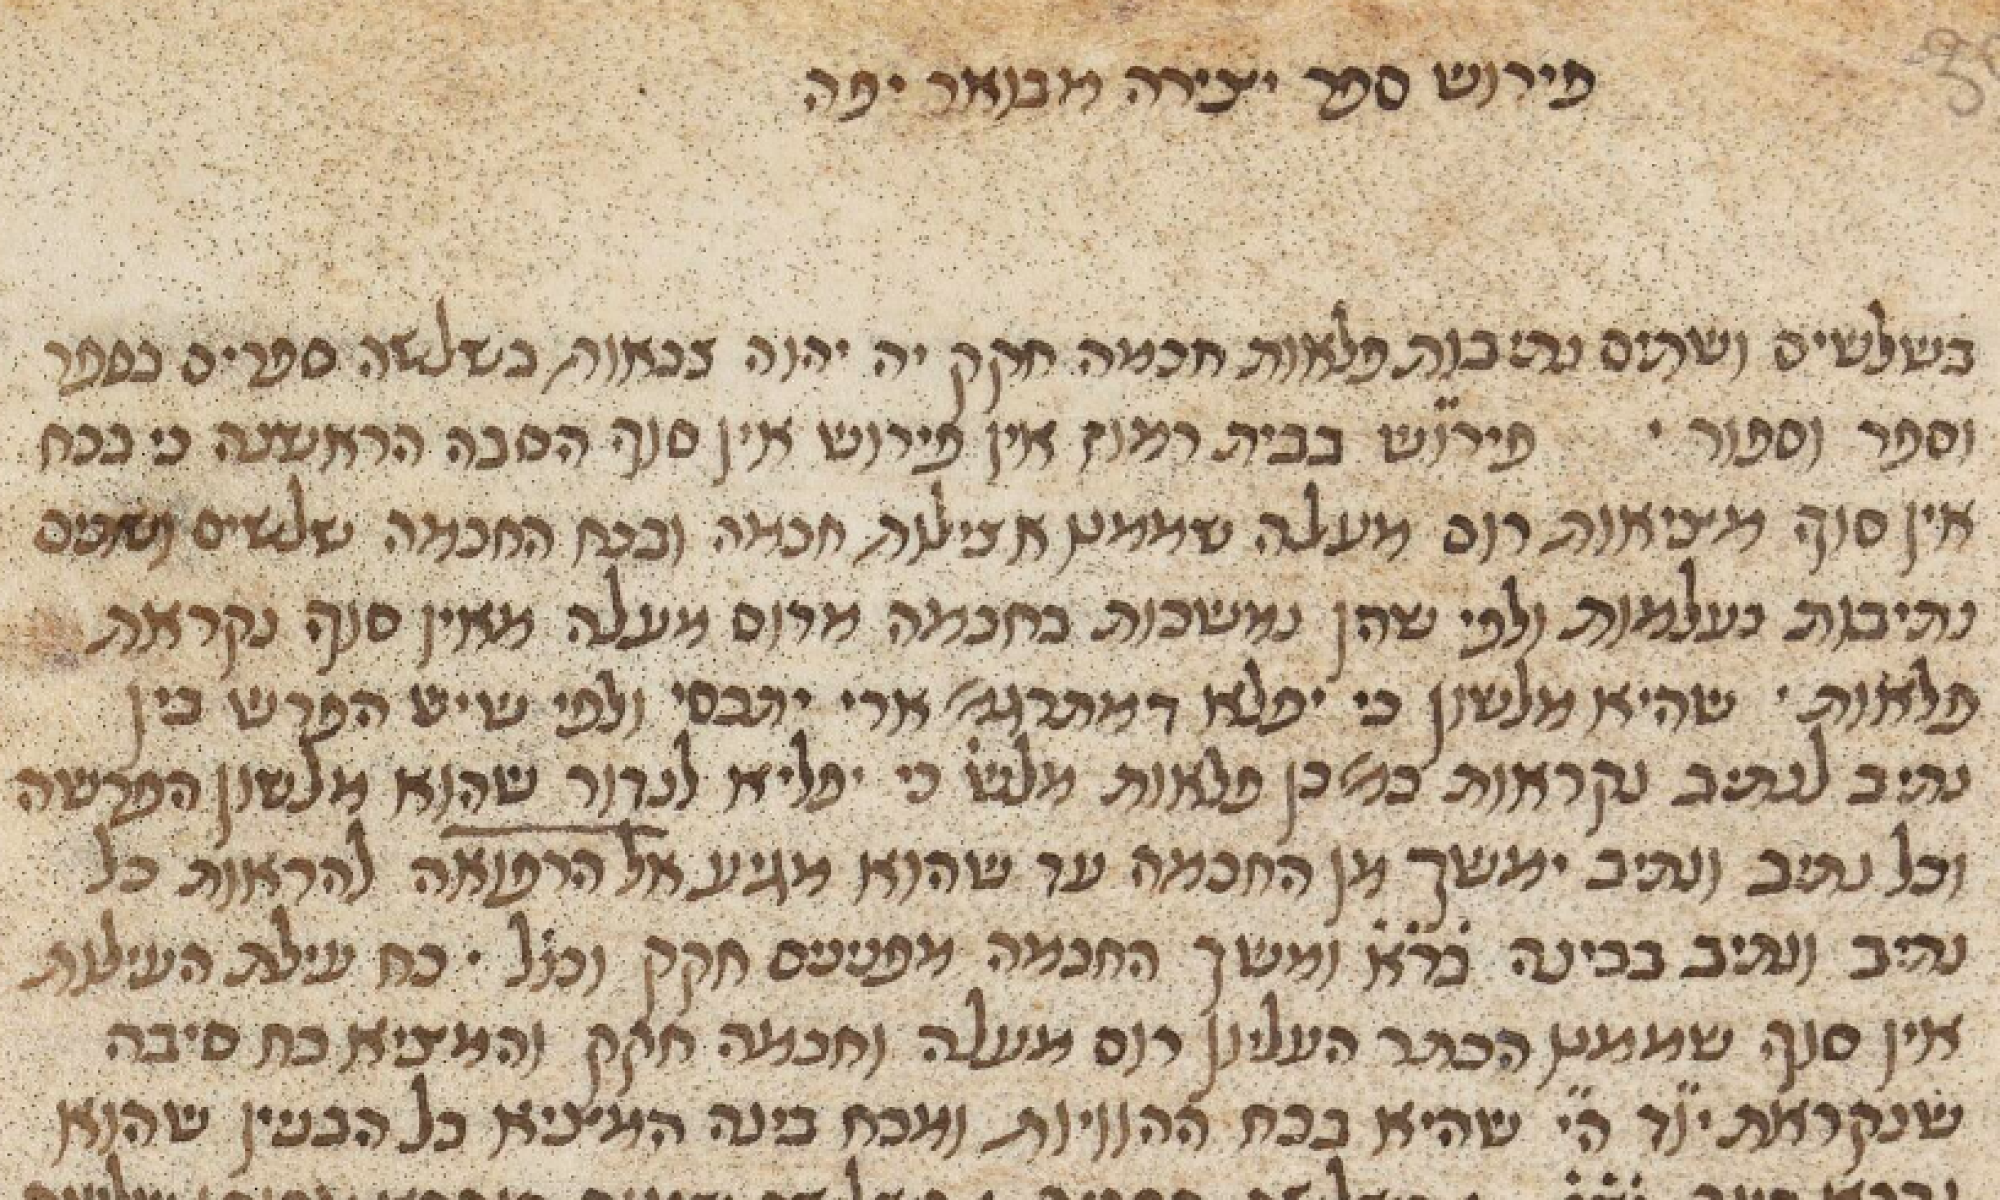 פירוש ספר יצירה מבואר יפה
בשלשים ושתים נתיבות פלאות חכמה חקק יה יהוה צבאות בשלשה ספרים בספר
וספר וספור · פירוש בבית רמוז אין פירוש אין סוף הסבה הראשונה כי בכח
אין סוף מציאות רום מעלה שממנו אצילות חכמה ובכח החכמה שלשים ושתים
נתיבות נעלמות ולפי שהן נמשכות בחכמה מרום מעלה מאין סוף נקראת
פלאות · שהיא מלשון כי יפלא דמתרגמ' ארי יתכסי ולפי שיש הפרש בין
נתיב לנתיב נקראות כמ' כן פלאות מלש' כי יפליא לנדור שהוא מלשון הפרשה
וכל נתיב ונתיב ימשך מן החכמה עד שהוא מגיע אל הרפואה להראות כל
נתיב ונתיב בבינה ומשך החכמה מפנינים חקק וכול' · כח עילת העילות
אין סוף שממנו הכתר העליון רום מעלה וחכמה חקק והמציא כח סיבה
שנקראת י"ו"ד ה"י שהיא בכח ההוויות ומכח בינה המציא כל הבנין שהוא